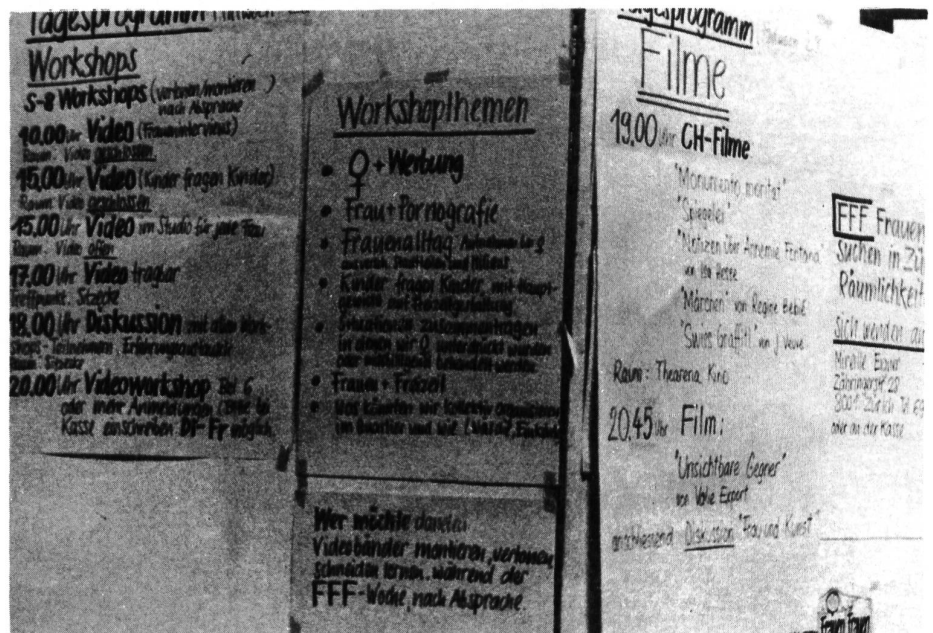 Tagesprogramm Mittwoch
Workshops
S-8 Workshops (vertonen/montieren)
nach Absprache
10.00 Uhr Video (Fraueninterviews)
Raum: Video geschlossen
15.00 Uhr Video (Kinder fragen Kinder)
Raum: Video geschlossen
15.00 Uhr Video im Studio für jede Frau
Raum: Video offen
17.00 Uhr Video
Treffpunkt: Sitzecke
18.00 Uhr Diskussion mit allen Work-
shops-Teilnehmern, Erfahrungsaustausch
Raum: Sitzecke
20.00 Uhr Videoworkshop Bei 6
oder mehr Anmeldungen, bitte bei
Kasse einschreiben Di-Fr möglich
Workshopthemen
• ♀ + Werbung
• Frau + Pornografie
• Frauenalltag
• Kinder fragen Kinder, mit Haupt-
gewicht auf
• Situationen zusammentragen
in denen wir ♀ unterdrückt wurden
oder
• Frauen + Freizeit
• Was könnten wir kollektiv organisieren
im Quartier und wie
Wer möchte daneben
Videobänder montieren, vertonen,
schneiden lernen, während der
FFF-Woche, nach Absprache.
Tagesprogramm
Filme
19.00 Uhr CH-Filme
"Monumento meritat"
"Spiegelei"
"Notizen über Annemie Fontana"
von Isa Hesse
"Märchen" von Regine Bebié
"Swiss Graffiti" von J. Veuve
Raum: Thearena, Kino
20.45 Uhr Film:
"Unsichtbare Gegner"
von Valie Export
anschliessend Diskussion "Frau und Kunst"
FFF Frauen
Suchen in Zü
Räumlichkeit
sich wenden an
Mireille
Zähringerstr 20
8001 Zürich Tel
oder an der Kasse